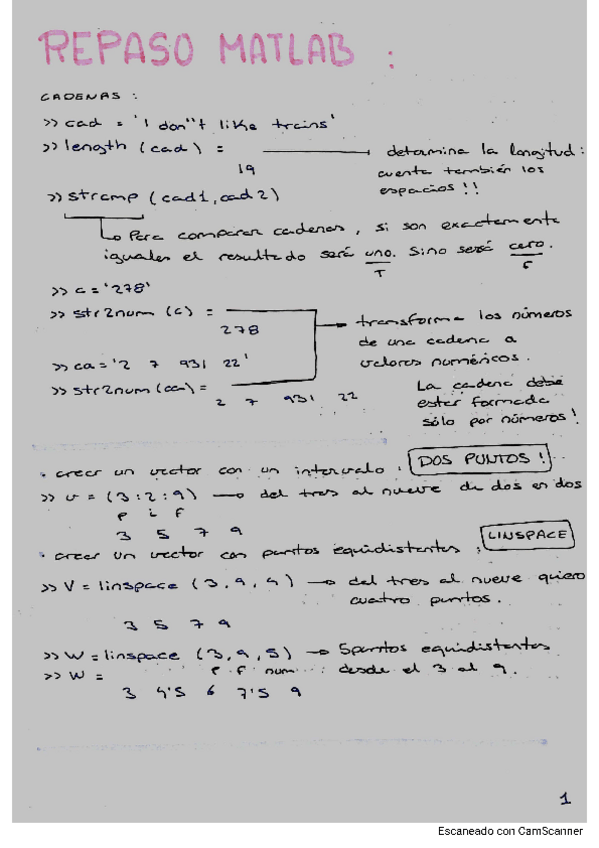 REPASO MATLAB :
CADENAS :
>> cad = 'I don''t like trains'
>> length (cad) =
19
determina la longitud :
cuenta también los
espacios !!
>> strcmp (cad1, cad2)
Para comparar cadenas, si son exactamente
iguales el resultado será uno. Sino será cero.
T F
>> c = '278'
>> str2num (c) =
278
transforma los números
de una cadena a
valores numéricos.
>> ca = '2 7 931 22'
>> str2num (ca) =
2 7 931 22
La cadena debe
estar formada
sólo por números!
• crear un vector con un intervalo : DOS PUNTOS !
>> v = (3:2:9) → del tres al nueve de dos en dos
P i F
3 5 7 9
• crear un vector con puntos equidistantes : LINSPACE
>> V = linspace (3, 9, 4) → del tres al nueve quiero
cuatro puntos.
3 5 7 9
>> W = linspace (3, 9, 5) → 5 puntos equidistantes
P F num desde el 3 al 9.
>> W =
3 4'5 6 7'5 9
1
Escaneado con CamScanner